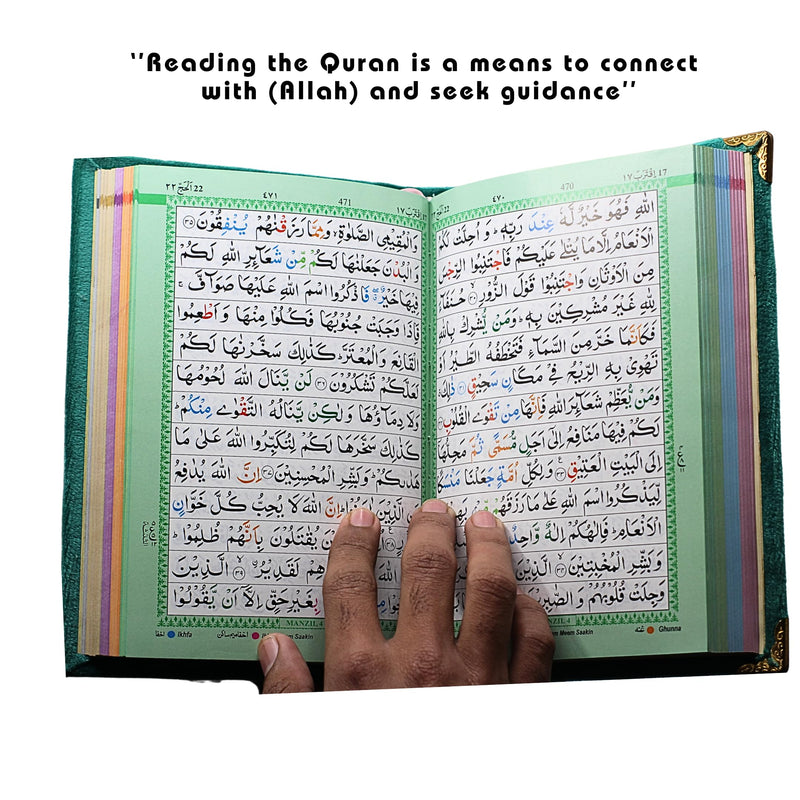 "Reading the Quran is a means to connect
with (Allah) and seek guidance"
اِقْتَرَبَ ١٧ 17
470
٤٧٠
اللّٰهِ فَهُوَ خَيْرٌ لَّهٗ عِنْدَ رَبِّهٖ ؕ وَ اُحِلَّتْ لَكُمُ
الْاَنْعَامُ اِلَّا مَا يُتْلٰى عَلَيْكُمْ فَاجْتَنِبُوا الرِّجْسَ
مِنَ الْاَوْثَانِ وَاجْتَنِبُوْا قَوْلَ الزُّوْرِ ۙ حُنَفَآءَ
لِلّٰهِ غَيْرَ مُشْرِكِيْنَ بِهٖ ؕ وَمَنْ يُّشْرِكْ بِاللّٰهِ
فَكَاَنَّمَا خَرَّ مِنَ السَّمَآءِ فَتَخْطَفُهُ الطَّيْرُ اَوْ
تَهْوِيْ بِهِ الرِّيْحُ فِيْ مَكَانٍ سَحِيْقٍ ذٰلِكَ
وَمَنْ يُّعَظِّمْ شَعَآئِرَ اللّٰهِ فَاِنَّهَا مِنْ تَقْوَى الْقُلُوْبِ
لَكُمْ فِيْهَا مَنَافِعُ اِلٰٓى اَجَلٍ مُّسَمًّى ثُمَّ مَحِلُّهَا
اِلَى الْبَيْتِ الْعَتِيْقِ وَلِكُلِّ اُمَّةٍ جَعَلْنَا مَنْسَكًا
لِّيَذْكُرُوا اسْمَ اللّٰهِ عَلٰى مَا رَزَقَهُمْ
الْاَنْعَامِ ؕ فَاِلٰهُكُمْ اِلٰهٌ وَّاحِدٌ
وَبَشِّرِ الْمُخْبِتِيْنَ ۙ الَّذِيْنَ
وَجِلَتْ قُلُوْبُهُمْ وَالصّٰبِرِيْنَ
MANZIL 4
Meem Saakin
غنه Ghunna
اَلْحَجّ ٢٢ 22
٤٧١
471
اِقْتَرَبَ ١٧
وَالْمُقِيْمِي الصَّلٰوةِ ۙ وَمِمَّا رَزَقْنٰهُمْ يُنْفِقُوْنَ ٣٥
وَالْبُدْنَ جَعَلْنٰهَا لَكُمْ مِّنْ شَعَآئِرِ اللّٰهِ لَكُمْ
فِيْهَا خَيْرٌ ۖ فَاذْكُرُوا اسْمَ اللّٰهِ عَلَيْهَا صَوَآفَّ ۚ
فَاِذَا وَجَبَتْ جُنُوْبُهَا فَكُلُوْا مِنْهَا وَاَطْعِمُوا
الْقَانِعَ وَالْمُعْتَرَّ ؕ كَذٰلِكَ سَخَّرْنٰهَا لَكُمْ
لَعَلَّكُمْ تَشْكُرُوْنَ ٣٦ لَنْ يَّنَالَ اللّٰهَ لُحُوْمُهَا
وَلَا دِمَآؤُهَا وَلٰكِنْ يَّنَالُهُ التَّقْوٰى مِنْكُمْ ؕ
كَذٰلِكَ سَخَّرَهَا لَكُمْ لِتُكَبِّرُوا اللّٰهَ عَلٰى مَا
هَدٰىكُمْ ؕ وَبَشِّرِ الْمُحْسِنِيْنَ ٣٧ اِنَّ اللّٰهَ يُدٰفِعُ
الَّذِيْنَ اِنَّ اللّٰهَ لَا يُحِبُّ كُلَّ خَوَّانٍ
يُقٰتَلُوْنَ بِاَنَّهُمْ ظُلِمُوْا ؕ
اللّٰهَ هِمْ لَقَدِيْرٌ ۙ ٣٩ الَّذِيْنَ
بِغَيْرِ حَقٍّ اِلَّآ اَنْ يَّقُوْلُوْا
MANZIL 4
اخفا Ikhfa
اخفا میم ساکن Saakin